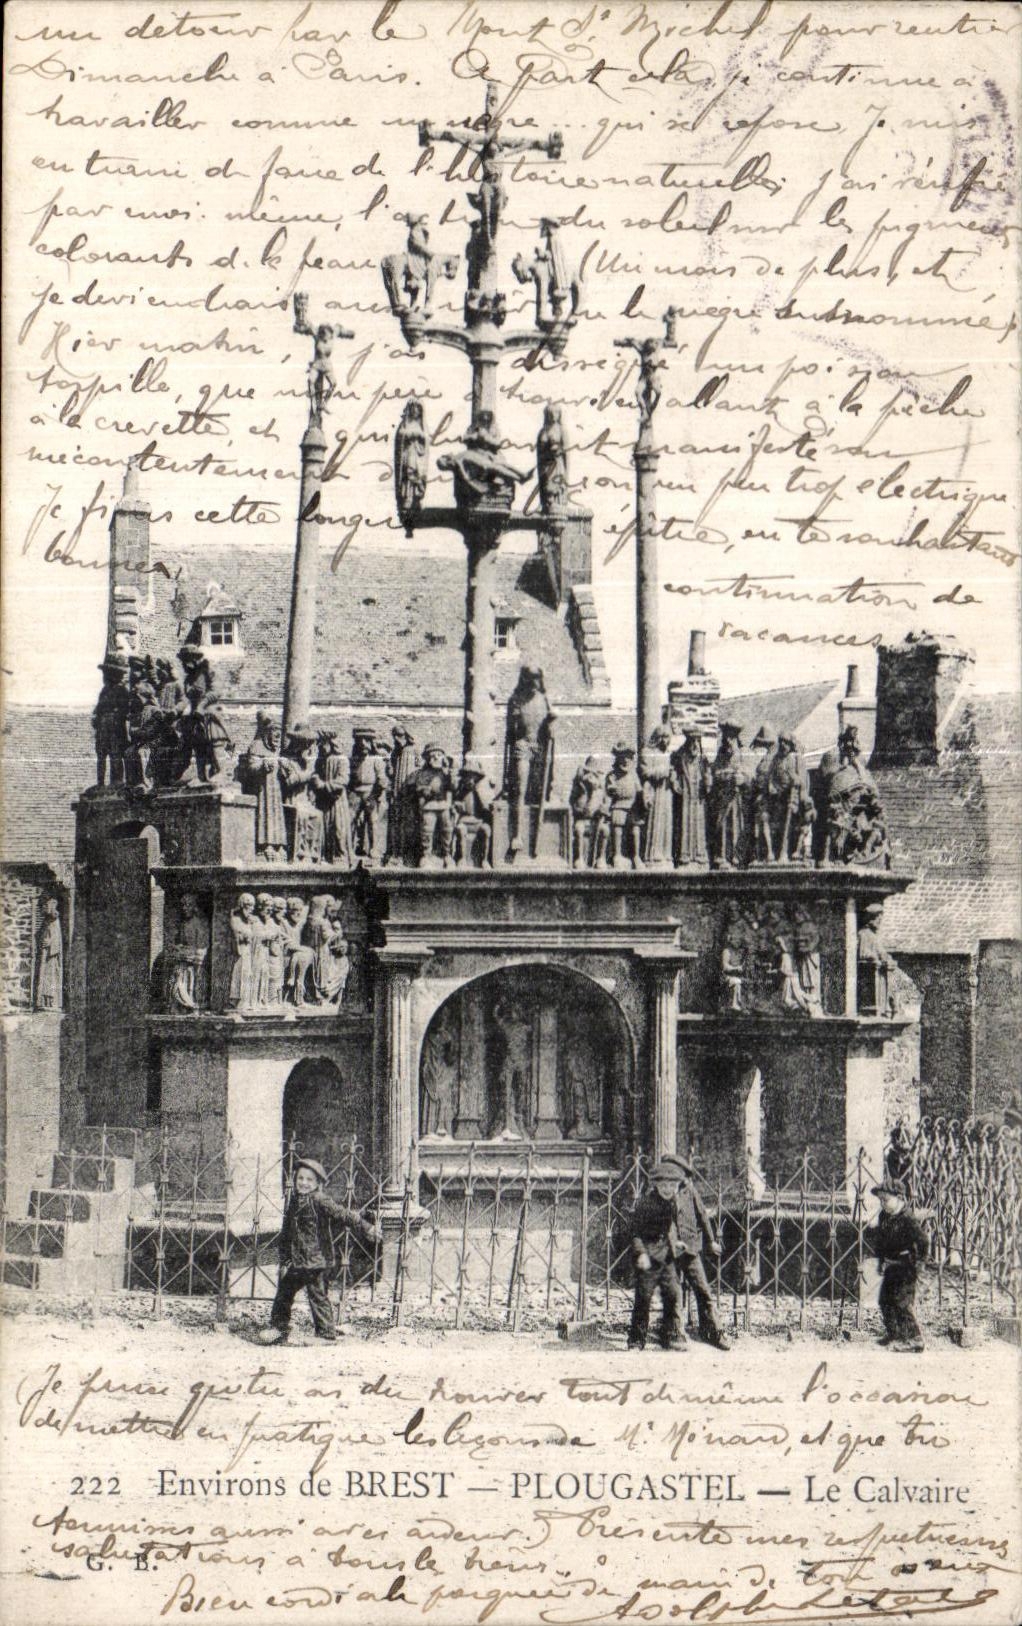 un détour par le Mont St Michel pour rentrer
Dimanche à Paris. A part cela, je continue à
travailler comme un nègre... qui se repose. Je suis
en train de faire de l'histoire naturelle; j'ai vérifié
par moi-même, l'action du soleil sur les pigments
colorants de la peau (Un mois de plus, et
je deviendrais aussi noir que le nègre susnommé)
Hier matin, j'ai disséqué un poisson
torpille, que mon père a trouvé en allant à la pêche
à la crevette, et qui lui avait manifesté son
mécontentement d'une façon un peu trop électrique
Je finis cette longue épître, en te souhaitant
bonne continuation de
vacances
(Je pense que tu as du trouver tout de même l'occasion
de mettre en pratique les leçons de Mr Minard, et que tu
222 Environs de BREST — PLOUGASTEL — Le Calvaire
aussi avec ardeur.) Présente mes respectueuses
salutations à tous les tiens.
G. B.
Bien cordiale poignée de main de ton vieux
Adolphe